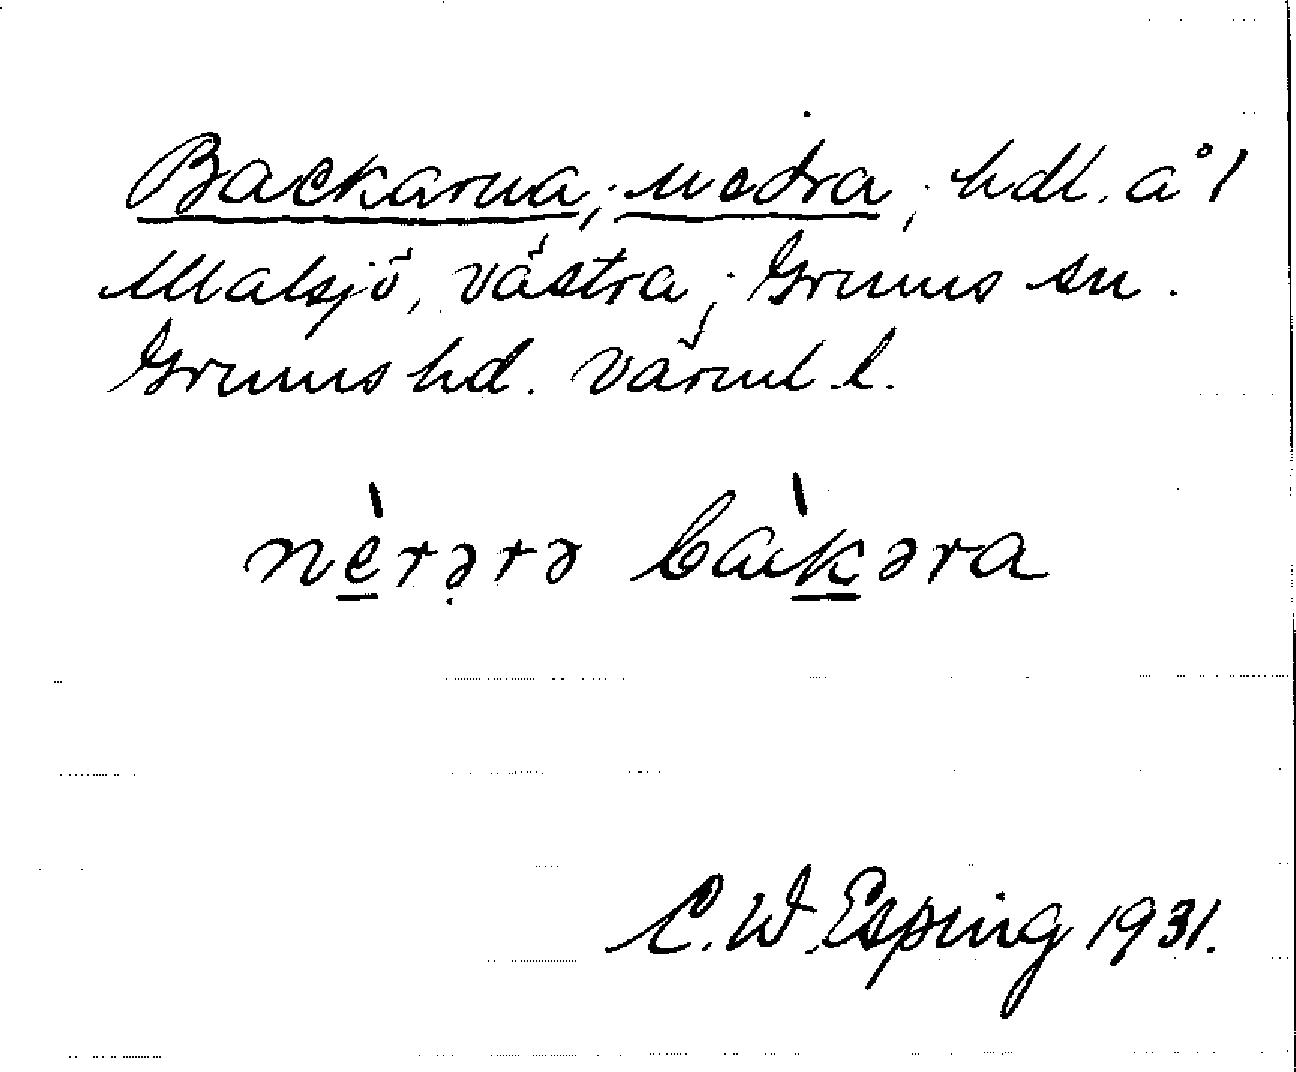 Backarna; nedra; hdl. å 1
Malsjö, västra; Grums sn.
Grums hd. Värml. l.
nè̱rə̣rə bàḵəra
C. W. Esping 1931.